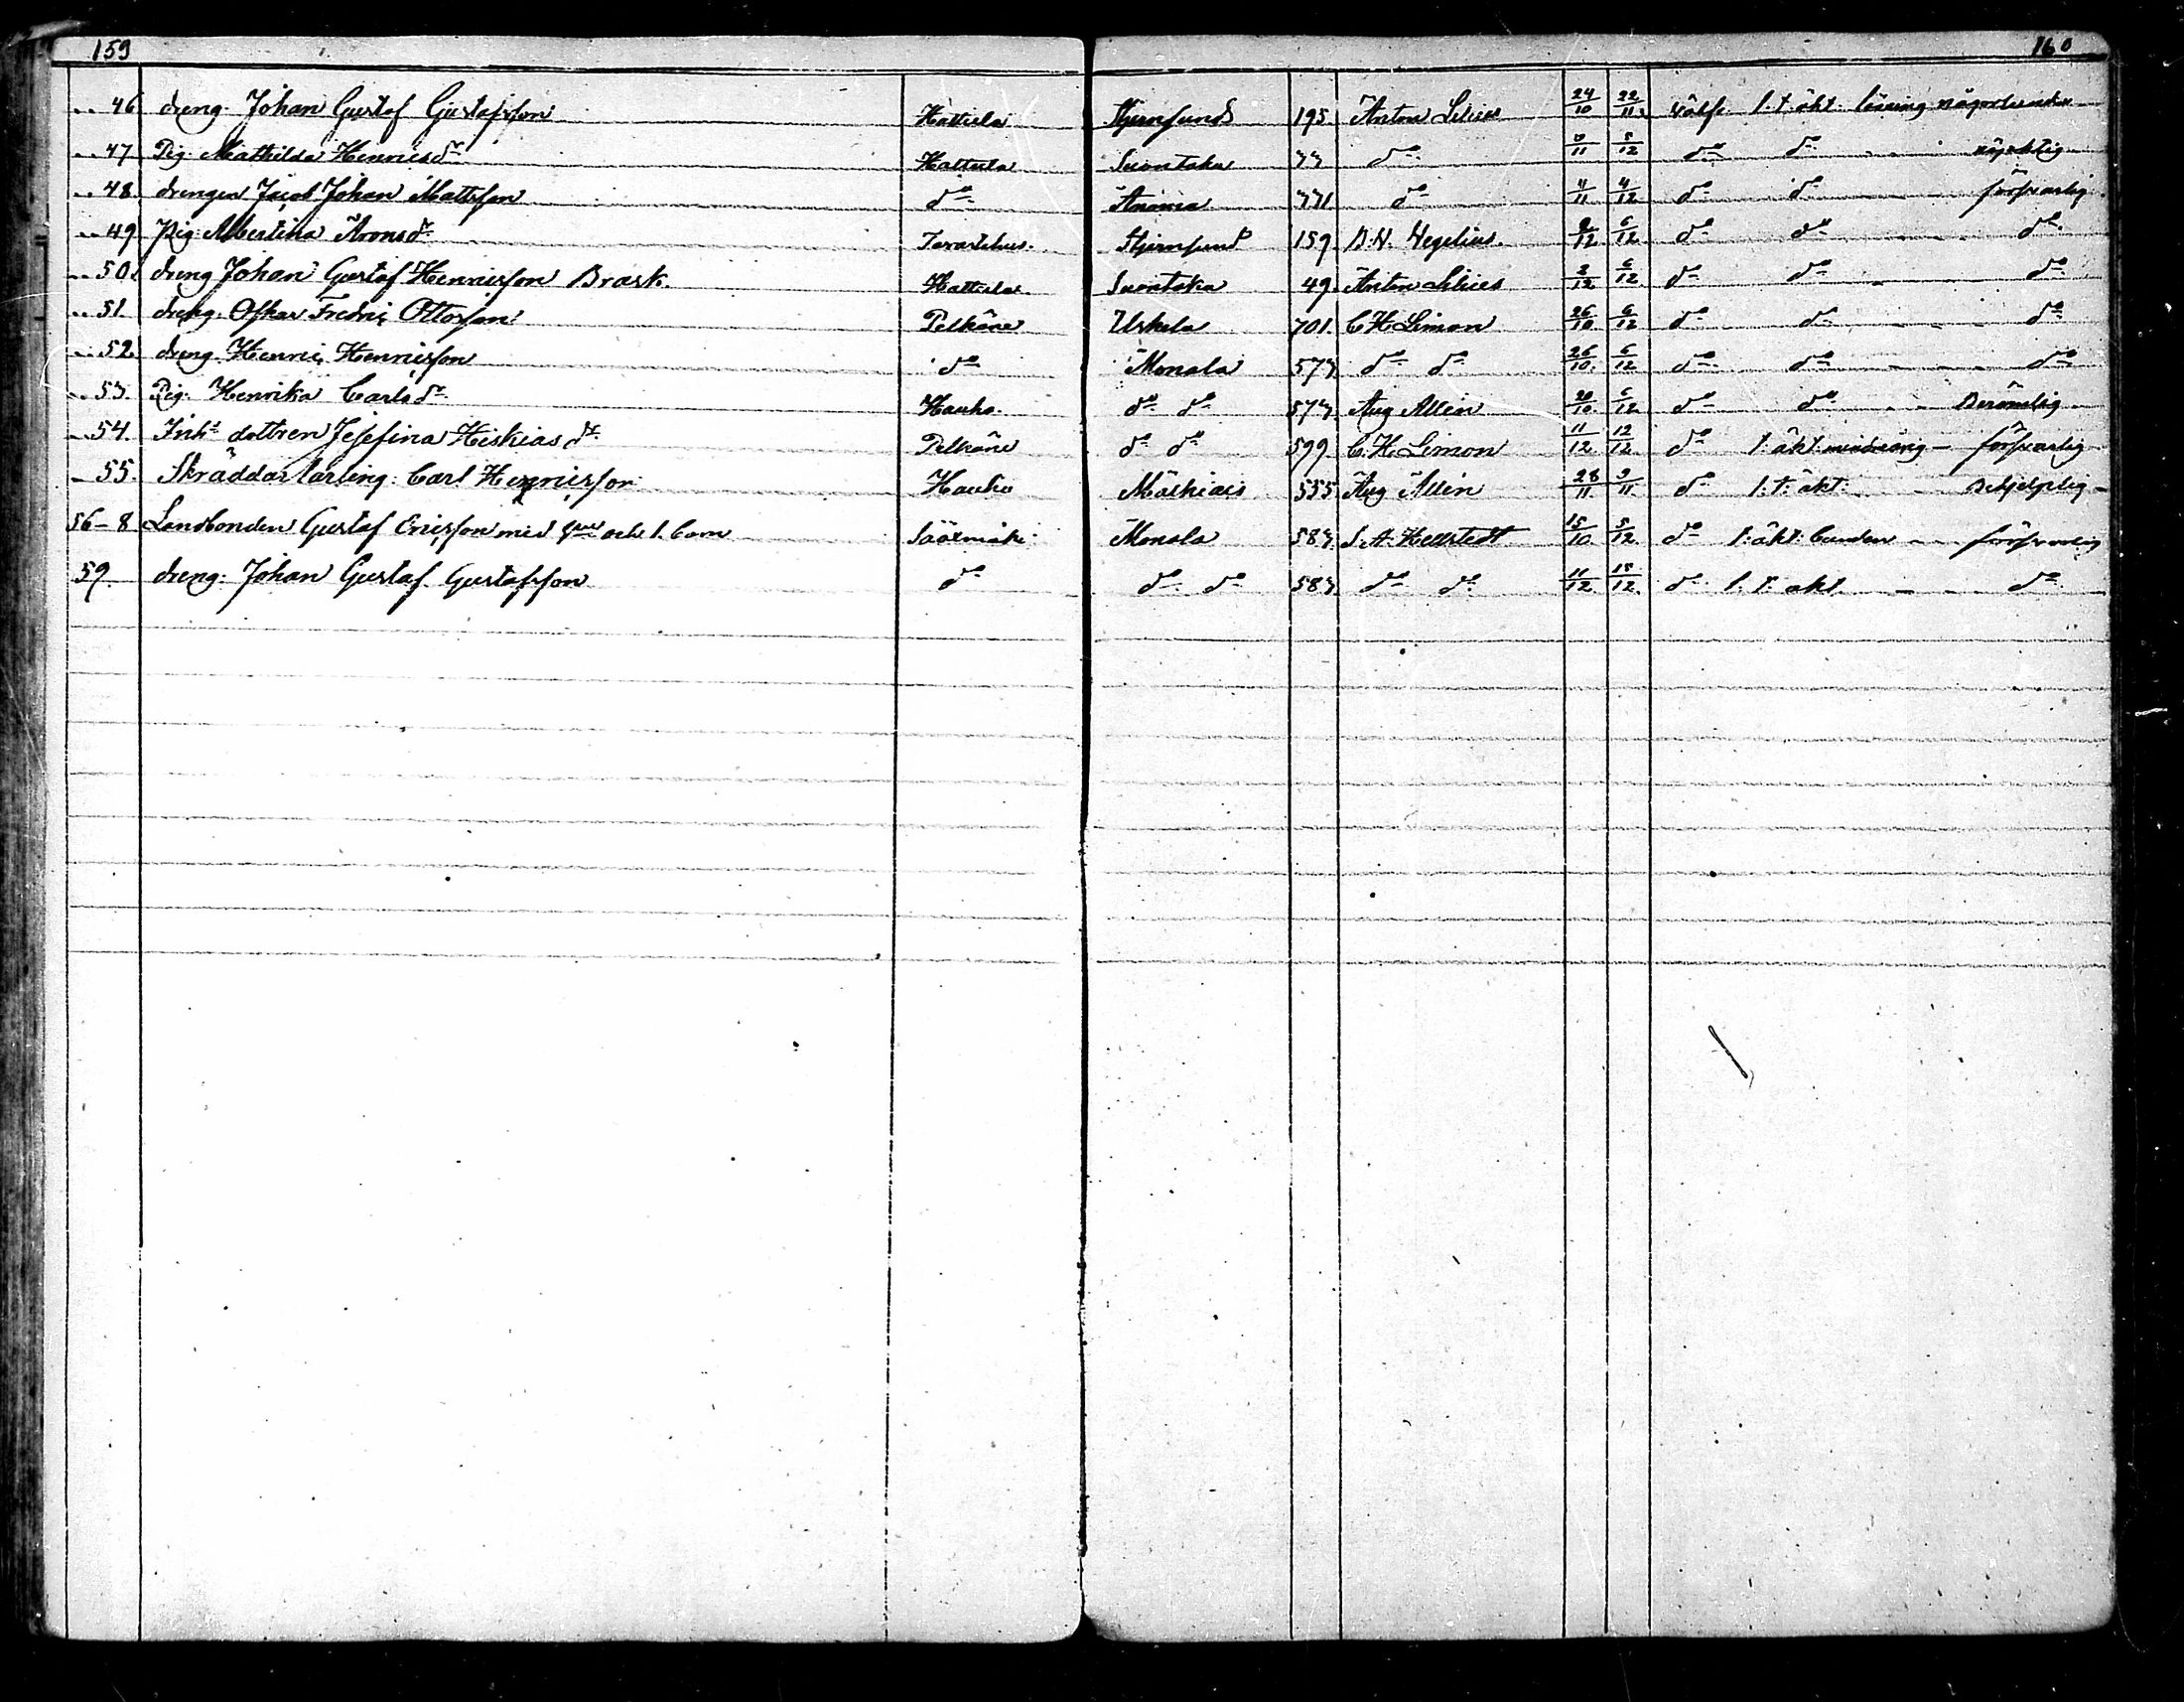 159
160
46 dreng Johan Gustaf Gustafsson Hattula Stjernsund 195 Anton Lilius 24/10 22/11 välfr. l: t: äkt. läsning någorlunda
47 Pig. Mathilda Henricsdr Hattula Suontaka 77 do 5/12 do do
48. drengen Jacob Johan Mattsson do 771 do 11/11 4/12 do do försvarlig
49 Pig: Albertina Aronsdr Tavastehus. Stjernsund 159 B.H. Wegelius. 6/12 do do do
50. dreng Johan Gustaf Henricsson Brask Hattula Suontaka 49 Anton Lilius 2/12 6/12 do do do
51 dreng. Oskar Fredric Ottosson Pelkäne Uskila 701. C H Limon 26/10 6/12 do do do
52. dreng. Henric Henricsson do Monala 573 do do 26/10 6/12 do do do
53. Pig. Henrika Carlsdr Hauho. do do 573 Aug Allin 20/10 6/12 do do Berömlig
54. Inhs dottren Josefina Hiskiasdr Pelkäne do do 599 C. H. Limon 11/12 12/12 do t: äkt: försvarlig
55. Skräddarlärling: Carl Henricsson Hauho 555 Aug Allin 28/11 do l: t: äkt: Behjelplig
56-8 Landbonden Gustaf Ericsson med och 1. barn Sääxmäki Monala 583 S. A. Hellstedt 15/10 5/12 do t: äkt: försvarlig
59. dreng: Johan Gustaf. Gustafsson do do do 583 do do 11/12 15/12 do l: t: äkt. do